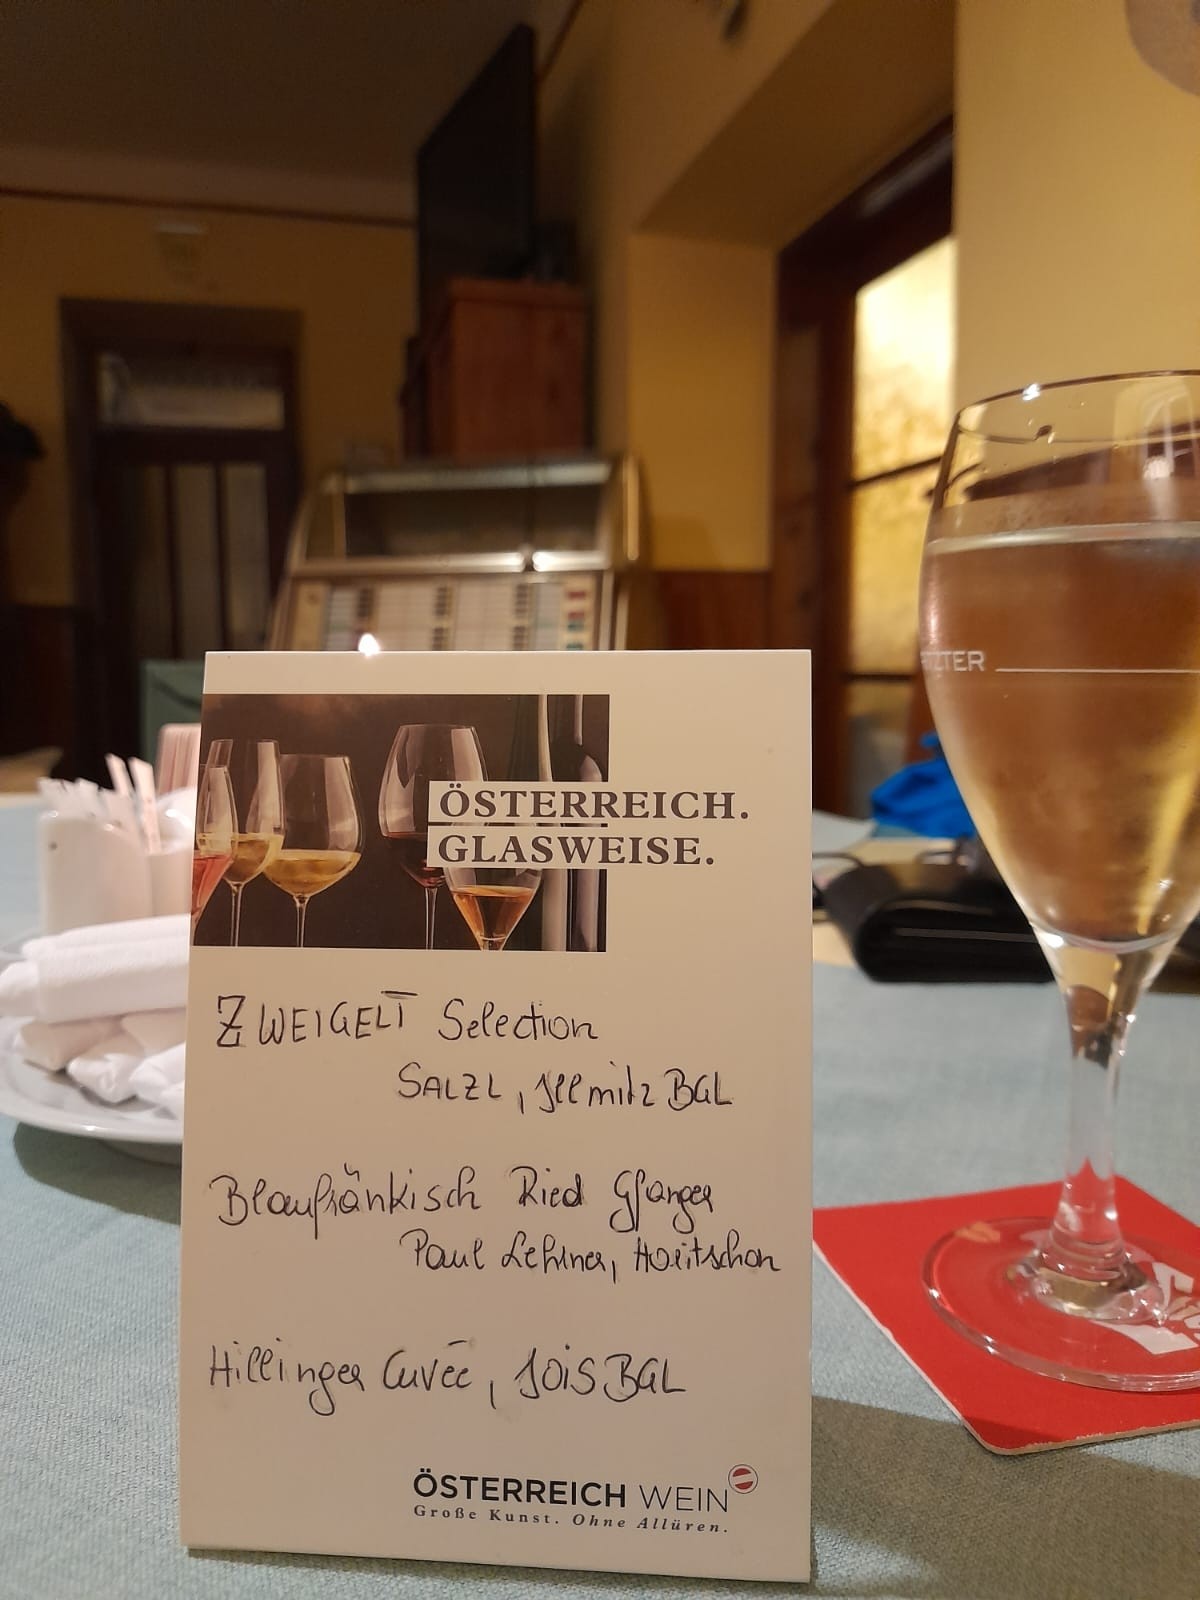 ÖSTERREICH.
GLASWEISE.
ZWEIGELT Selection
SALZL, Illmitz BGL
Blaufränkisch Ried Gfanger
Paul Lehrner, Horitschon
Hillinger Cuvée, JOIS BGL
ÖSTERREICH WEIN
Große Kunst. Ohne Allüren.